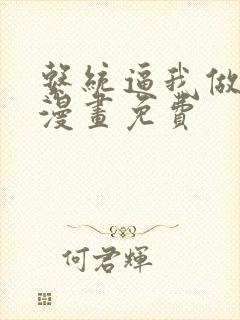 繫統逼我做
漫畫免費
何君輝